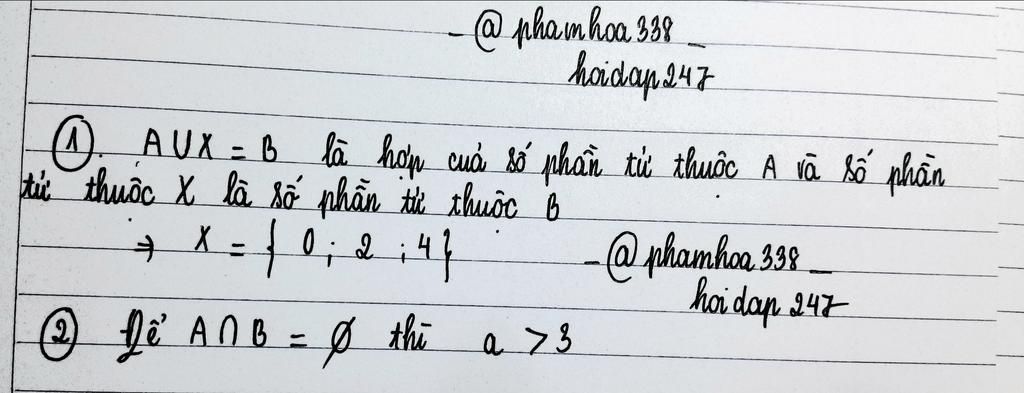 - @ phamhoa338 _
hoidap247
①. A∪X = B là hợp của số phần tử thuộc A và số phần
tử thuộc X là số phần tử thuộc B
⇒ X = { 0 ; 2 ; 4 }
- @phamhoa338 _
hoidap 247
② Để A ∩ B = ∅ thì a > 3